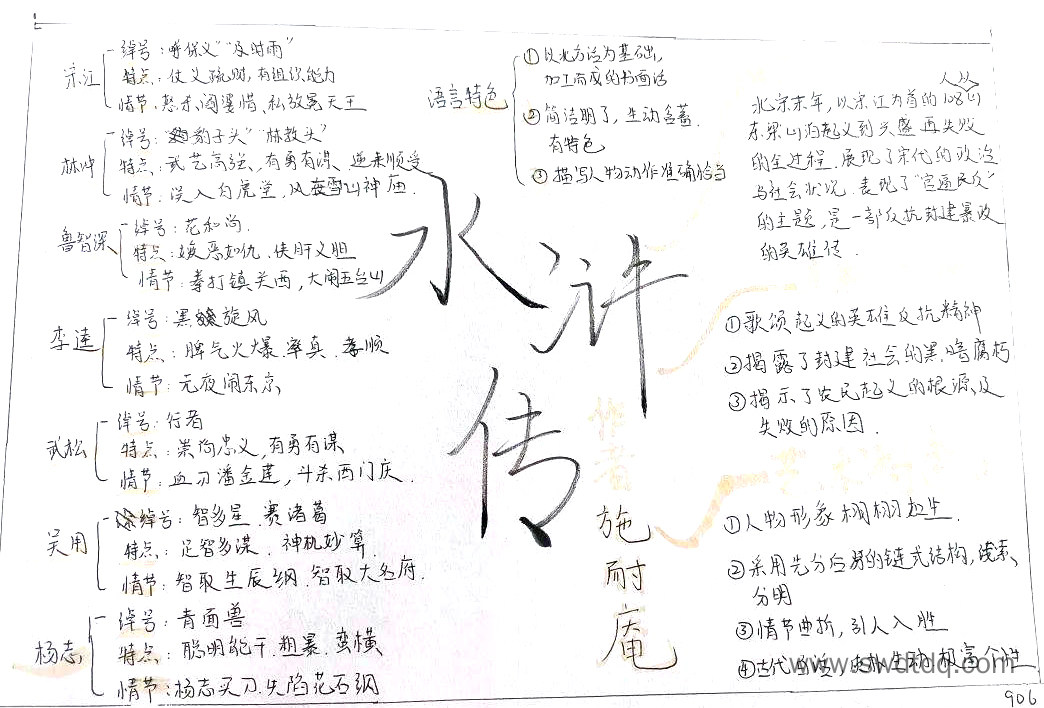 宋江
绰号：呼保义“及时雨”
特点：仗义疏财，有组织能力
情节：怒杀阎婆惜、私放晁天王
林冲
绰号：豹子头“林教头”
特点：武艺高强、有勇有谋、逆来顺受
情节：误入白虎堂，风雪山神庙
鲁智深
绰号：花和尚
特点：嫉恶如仇、侠肝义胆
情节：拳打镇关西，大闹五台山
李逵
绰号：黑旋风
特点：脾气火爆 率真 孝顺
情节：元夜闹东京
武松
绰号：行者
特点：崇尚忠义，有勇有谋
情节：血刃潘金莲，斗杀西门庆
吴用
绰号：智多星 赛诸葛
特点：足智多谋、神机妙算
情节：智取生辰纲、智取大名府
杨志
绰号：青面兽
特点：聪明能干、粗暴、蛮横
情节：杨志买刀、失陷花石纲
语言特色
①以北方话为基础，
加工而成的书画话
②简洁明了，生动含蓄
有特色
③描写人物动作准确恰当
水浒
传
施
耐
庵
北宋末年，以宋江为首的108人
东梁山泊起义到兴盛再失败
的全过程．展现了宋代的政治
与社会状况．表现了“官逼民反”
的主题，是一部反抗封建暴政
的英雄传
①歌颂起义的英雄反抗精神
②揭露了封建社会的黑暗腐朽
③揭示了农民起义的根源及
失败的原因．
①人物形象栩栩如生．
②采用先分后合的链式结构，线索、
分明
③情节曲折，引人入胜
④古代
极富个性
www.swdtdq.com
906